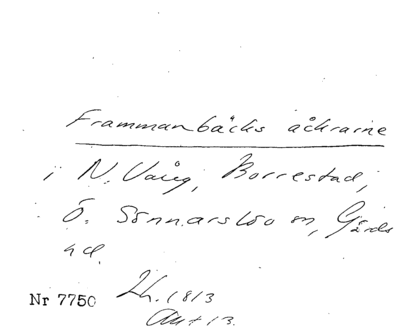 Frammanbäcks åkrarne
i N. Vång, Borrestad,
Ö. Sönnarslöv sn, Gärds
hd.
Nr 7750 Lh. 1813
Akt 13.